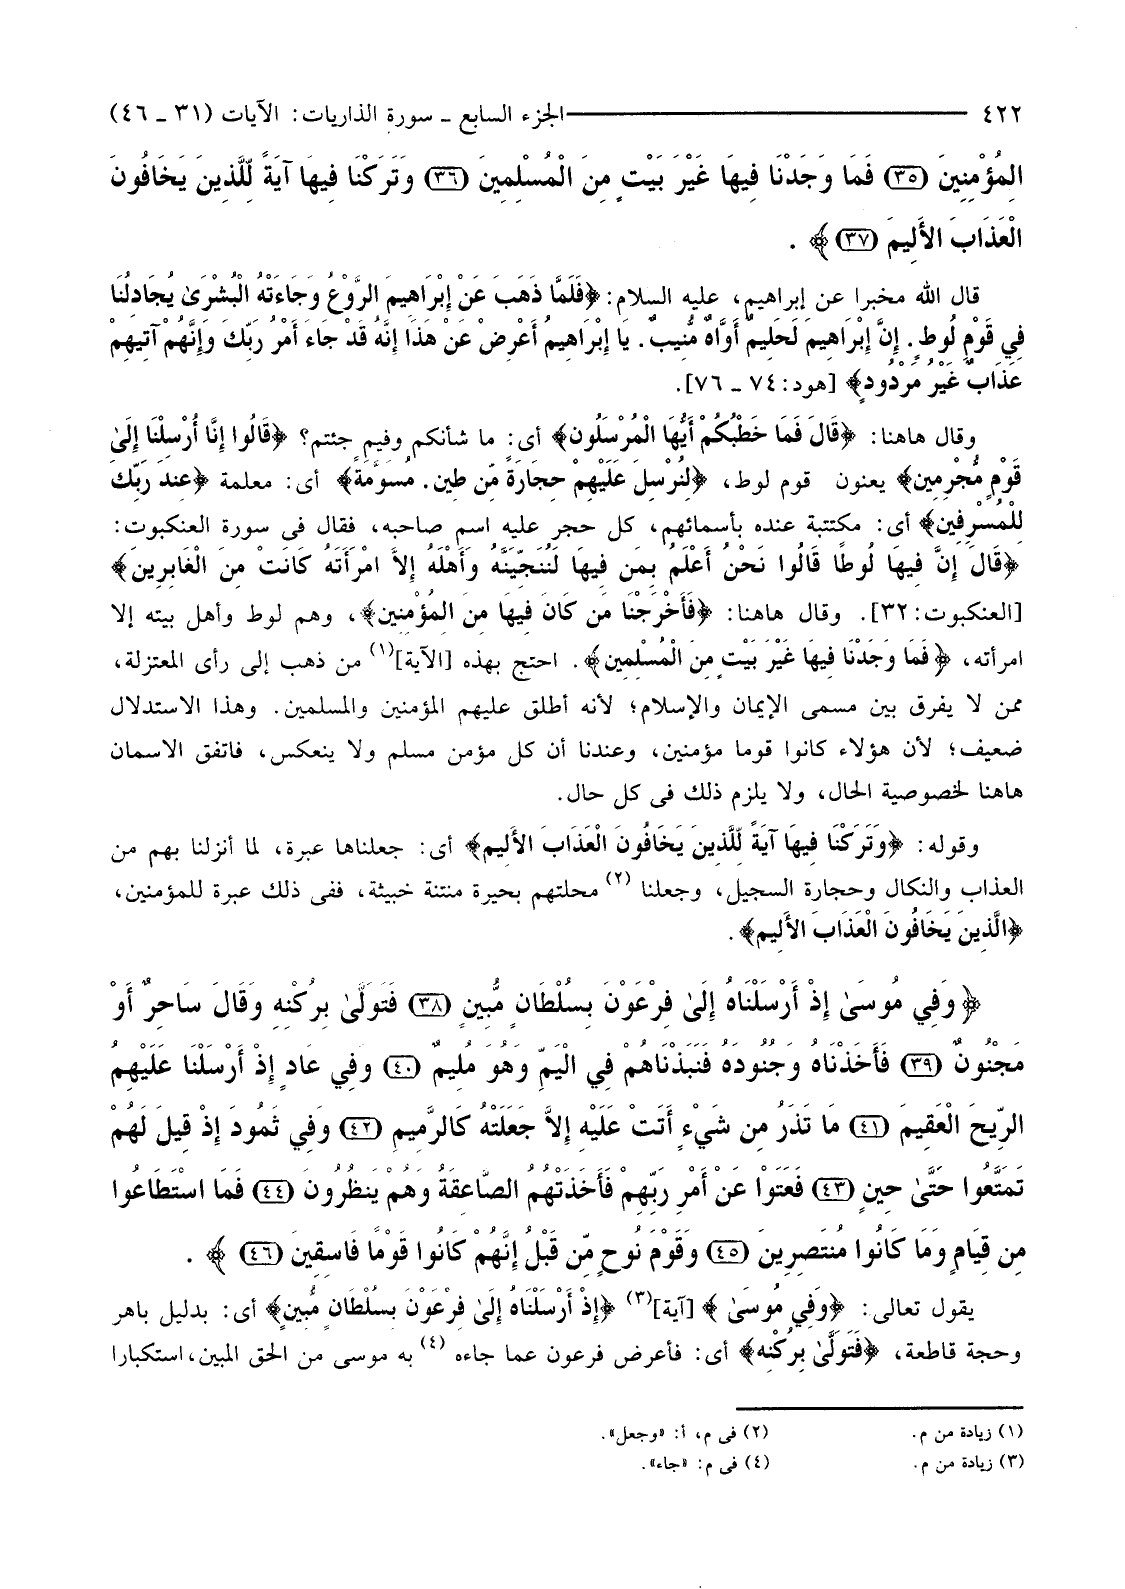 ٤٢٢ الجزء السابع ـ سورة الذاريات: الآيات (٣١ ـ ٤٦)
الْمُؤْمِنِينَ (٣٥) فَمَا وَجَدْنَا فِيهَا غَيْرَ بَيْتٍ مِنَ الْمُسْلِمِينَ (٣٦) وَتَرَكْنَا فِيهَا آيَةً لِّلَّذِينَ يَخَافُونَ
الْعَذَابَ الأَلِيمَ (٣٧) ﴾ .
قال الله مخبرا عن إبراهيم، عليه السلام: ﴿فَلَمَّا ذَهَبَ عَنْ إِبْرَاهِيمَ الرَّوْعُ وَجَاءَتْهُ الْبُشْرَىٰ يُجَادِلُنَا
فِي قَوْمِ لُوطٍ . إِنَّ إِبْرَاهِيمَ لَحَلِيمٌ أَوَّاهٌ مُّنِيبٌ . يَا إِبْرَاهِيمُ أَعْرِضْ عَنْ هَذَا إِنَّهُ قَدْ جَاءَ أَمْرُ رَبِّكَ وَإِنَّهُمْ آتِيهِمْ
عَذَابٌ غَيْرُ مَرْدُودٍ﴾ [هود: ٧٤ ـ ٧٦].
وقال هاهنا: ﴿قَالَ فَمَا خَطْبُكُمْ أَيُّهَا الْمُرْسَلُونَ﴾ أى: ما شأنكم وفيم جئتم؟ ﴿قَالُوا إِنَّا أُرْسِلْنَا إِلَىٰ
قَوْمٍ مُّجْرِمِينَ﴾ يعنون قوم لوط، ﴿لِنُرْسِلَ عَلَيْهِمْ حِجَارَةً مِّن طِينٍ . مُسَوَّمَةً﴾ أى: معلمة ﴿عِندَ رَبِّكَ
لِلْمُسْرِفِينَ﴾ أى: مكتتبة عنده بأسمائهم، كل حجر عليه اسم صاحبه، فقال فى سورة العنكبوت:
﴿قَالَ إِنَّ فِيهَا لُوطًا قَالُوا نَحْنُ أَعْلَمُ بِمَن فِيهَا لَنُنَجِّيَنَّهُ وَأَهْلَهُ إِلاَّ امْرَأَتَهُ كَانَتْ مِنَ الْغَابِرِينَ﴾
[العنكبوت: ٣٢]. وقال هاهنا: ﴿فَأَخْرَجْنَا مَن كَانَ فِيهَا مِنَ الْمُؤْمِنِينَ﴾، وهم لوط وأهل بيته إلا
امرأته، ﴿فَمَا وَجَدْنَا فِيهَا غَيْرَ بَيْتٍ مِنَ الْمُسْلِمِينَ﴾ . احتج بهذه [الآية](١) من ذهب إلى رأى المعتزلة،
ممن لا يفرق بين مسمى الإيمان والإسلام؛ لأنه أطلق عليهم المؤمنين والمسلمين. وهذا الاستدلال
ضعيف؛ لأن هؤلاء كانوا قوما مؤمنين، وعندنا أن كل مؤمن مسلم ولا ينعكس، فاتفق الاسمان
هاهنا لخصوصية الحال، ولا يلزم ذلك فى كل حال.
وقوله: ﴿وَتَرَكْنَا فِيهَا آيَةً لِّلَّذِينَ يَخَافُونَ الْعَذَابَ الأَلِيمَ﴾ أى: جعلناها عبرة، لما أنزلنا بهم من
العذاب والنكال وحجارة السجيل، وجعلنا (٢) محلتهم بحيرة منتنة خبيثة، ففى ذلك عبرة للمؤمنين،
﴿الَّذِينَ يَخَافُونَ الْعَذَابَ الأَلِيمَ﴾.
﴿ وَفِي مُوسَىٰ إِذْ أَرْسَلْنَاهُ إِلَىٰ فِرْعَوْنَ بِسُلْطَانٍ مُّبِينٍ (٣٨) فَتَوَلَّىٰ بِرُكْنِهِ وَقَالَ سَاحِرٌ أَوْ
مَجْنُونٌ (٣٩) فَأَخَذْنَاهُ وَجُنُودَهُ فَنَبَذْنَاهُمْ فِي الْيَمِّ وَهُوَ مُلِيمٌ (٤٠) وَفِي عَادٍ إِذْ أَرْسَلْنَا عَلَيْهِمُ
الرِّيحَ الْعَقِيمَ (٤١) مَا تَذَرُ مِن شَيْءٍ أَتَتْ عَلَيْهِ إِلاَّ جَعَلَتْهُ كَالرَّمِيمِ (٤٢) وَفِي ثَمُودَ إِذْ قِيلَ لَهُمْ
تَمَتَّعُوا حَتَّىٰ حِينٍ (٤٣) فَعَتَوْا عَنْ أَمْرِ رَبِّهِمْ فَأَخَذَتْهُمُ الصَّاعِقَةُ وَهُمْ يَنظُرُونَ (٤٤) فَمَا اسْتَطَاعُوا
مِن قِيَامٍ وَمَا كَانُوا مُنتَصِرِينَ (٤٥) وَقَوْمَ نُوحٍ مِّن قَبْلُ إِنَّهُمْ كَانُوا قَوْمًا فَاسِقِينَ (٤٦) ﴾ .
يقول تعالى: ﴿وَفِي مُوسَىٰ ﴾ [آية](٣) ﴿إِذْ أَرْسَلْنَاهُ إِلَىٰ فِرْعَوْنَ بِسُلْطَانٍ مُّبِينٍ﴾ أى: بدليل باهر
وحجة قاطعة، ﴿فَتَوَلَّىٰ بِرُكْنِهِ﴾ أى: فأعرض فرعون عما جاءه (٤) به موسى من الحق المبين، استكبارا
(١) زيادة من م. (٢) فى م، أ: «وجعل».
(٣) زيادة من م. (٤) فى م: «جاء».